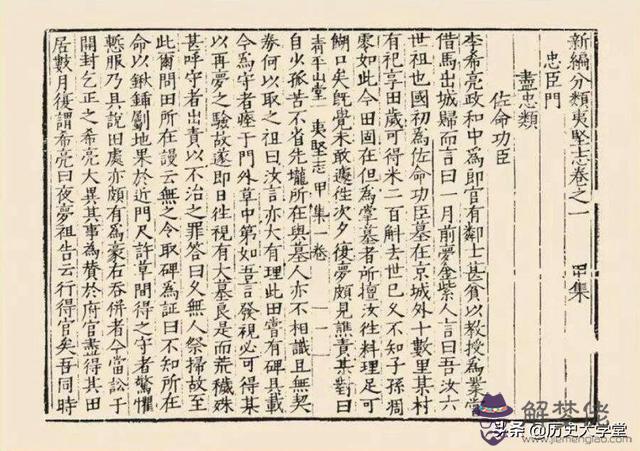 新編分類夷堅志卷之一 甲集
忠臣門
盡忠類
佐命功臣
李希亮政和中為郎官有鄰士甚貧以教授為業常
借馬出城歸而言曰一月前夢金紫人言曰吾汝六
世祖也國初為佐命功臣墓在京城外十數里某村
有祀享田歲可得米二百斛去世已久不知子孫凋
零如此今田固在但為掌墓者所擅汝往料理足可
餬口矣旣覺未敢遽往次夕復夢頗見譙責某對曰
清平山堂 夷堅志 甲集一卷 一
自少孤苦不省先壠所在與墓人亦不相識且無契
券何以取之祖曰汝言亦大有理此田嘗有碑具載
今為守者瘞于門外草中第如吾言發視必可得某
以再夢之驗故遂卽日往視有大墓艮是而荒穢殊
甚呼守者出責以不治之罪答曰久無人祭掃故至
此爾問田所在謾云無之令取碑為証曰不知所在
命以鍬鍤劚地果於近門尺許草間得之守者驚懼
慙服乃具說田處亦頗有為豪右吞併者今當訟于
開封乞正之希亮大異其事為贊於府官盡得其田
居數月復謂希亮曰夜夢祖告云行得官矣吾同時
解梦佬
头条 @历史大学堂
www.jiemenglao.com